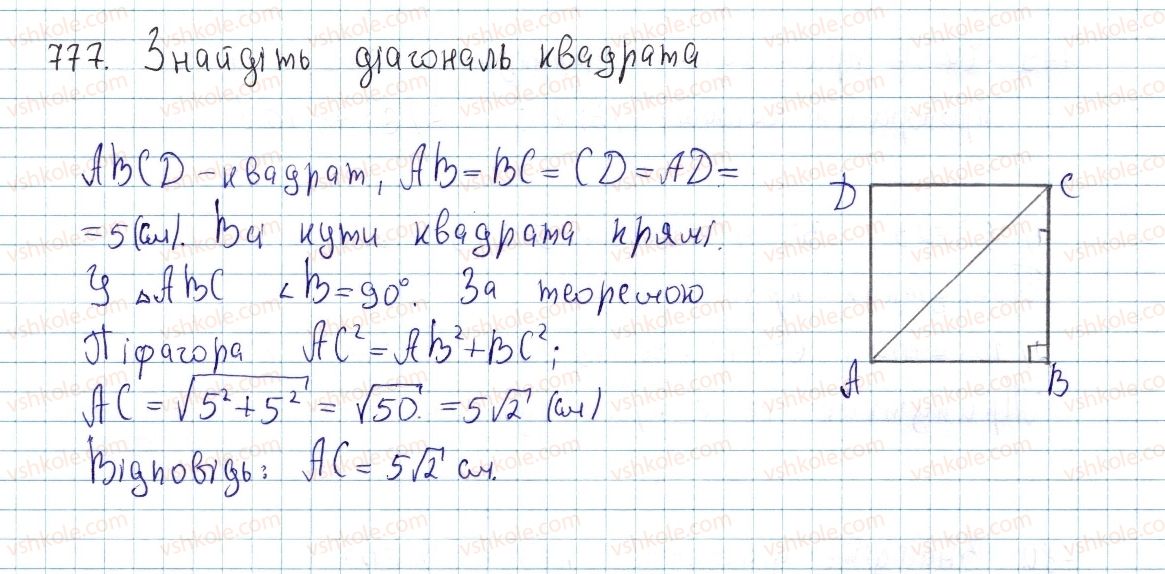 777. Знайдіть діагональ квадрата
ABCD – квадрат, AB = BC = CD = AD =
= 5 (см). Всі кути квадрата прямі.
У △ABC ∠B = 90°. За теоремою
Піфагора AC² = AB² + BC²;
AC = √(5² + 5²) = √50 = 5√2 (см)
Відповідь: AC = 5√2 см.
D C
A B
vshkole.com